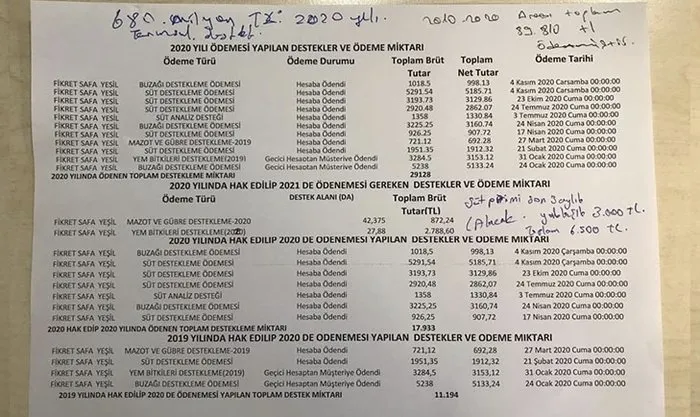 680 milyon TL: 2020 yılı 2010-2020 Arası toplam
Tarımsal destek. 89.810 tl
ödenmiştir.
2020 YILI ÖDEMESİ YAPILAN DESTEKLER VE ÖDEME MİKTARI
Ödeme Türü Ödeme Durumu Toplam Brüt Tutar Toplam Net Tutar Ödeme Tarihi
FİKRET SAFA YEŞİL BUZAĞI DESTEKLEME ÖDEMESİ Hesaba Ödendi 1018,5 998,13 4 Kasım 2020 Carsamba 00:00:00
FİKRET SAFA YEŞİL SÜT DESTEKLEME ÖDEMESİ Hesaba Ödendi 5291,54 5185,71 4 Kasım 2020 Carsamba 00:00:00
FİKRET SAFA YEŞİL SÜT DESTEKLEME ÖDEMESİ Hesaba Ödendi 3193,73 3129,86 23 Ekim 2020 Cuma 00:00:00
FİKRET SAFA YEŞİL SÜT DESTEKLEME ÖDEMESİ Hesaba Ödendi 2920,48 2862,07 24 Temmuz 2020 Cuma 00:00:00
FİKRET SAFA YEŞİL SÜT ANALİZ DESTEĞİ Hesaba Ödendi 1358 1330,84 3 Temmuz 2020 Cuma 00:00:00
FİKRET SAFA YEŞİL BUZAĞI DESTEKLEME ÖDEMESİ Hesaba Ödendi 3225,25 3160,74 24 Nisan 2020 Cuma 00:00:00
FİKRET SAFA YEŞİL SÜT DESTEKLEME ÖDEMESİ Hesaba Ödendi 926,25 907,72 17 Nisan 2020 Cuma 00:00:00
FİKRET SAFA YEŞİL MAZOT VE GÜBRE DESTEKLEME-2019 Hesaba Ödendi 721,12 692,28 27 Mart 2020 Cuma 00:00:00
FİKRET SAFA YEŞİL SÜT DESTEKLEME ÖDEMESİ Hesaba Ödendi 1951,35 1912,32 21 Şubat 2020 Cuma 00:00:00
FİKRET SAFA YEŞİL YEM BİTKİLERİ DESTEKLEME(2019) Geçici Hesaptan Müşteriye Ödendi 3284,5 3153,12 31 Ocak 2020 Cuma 00:00:00
FİKRET SAFA YEŞİL BUZAĞI DESTEKLEME ÖDEMESİ Geçici Hesaptan Müşteriye Ödendi 5238 5133,24 24 Ocak 2020 Cuma 00:00:00
2020 YILINDA ÖDENEN TOPLAM DESTEKLEME MİKTARI 29128
2020 YILINDA HAK EDİLİP 2021 DE ÖDENEMESİ GEREKEN DESTEKLER VE ÖDEME MİKTARI
Ödeme Türü DESTEK ALANI (DA) Toplam Brüt Tutar(TL)
süt primi son 3 aylık
FİKRET SAFA YEŞİL MAZOT VE GÜBRE DESTEKLEME-2020 42,375 872,24
(Alacak. yaklaşık 3.000 TL.
FİKRET SAFA YEŞİL YEM BİTKİLERİ DESTEKLEME(2020) 27,88 2.788,60
Toplam 6.500 TL.
2020 YILINDA HAK EDİLİP 2020 DE ÖDENEMESİ YAPILAN DESTEKLER VE ÖDEME MİKTARI
FİKRET SAFA YEŞİL BUZAĞI DESTEKLEME ÖDEMESİ Hesaba Ödendi 1018,5 998,13 4 Kasım 2020 Çarşamba 00:00:00
FİKRET SAFA YEŞİL SÜT DESTEKLEME ÖDEMESİ Hesaba Ödendi 5291,54 5185,71 4 Kasım 2020 Çarşamba 00:00:00
FİKRET SAFA YEŞİL SÜT DESTEKLEME ÖDEMESİ Hesaba Ödendi 3193,73 3129,86 23 Ekim 2020 Cuma 00:00:00
FİKRET SAFA YEŞİL SÜT DESTEKLEME ÖDEMESİ Hesaba Ödendi 2920,48 2862,07 24 Temmuz 2020 Cuma 00:00:00
FİKRET SAFA YEŞİL SÜT ANALİZ DESTEĞİ Hesaba Ödendi 1358 1330,84 3 Temmuz 2020 Cuma 00:00:00
FİKRET SAFA YEŞİL BUZAĞI DESTEKLEME ÖDEMESİ Hesaba Ödendi 3225,25 3160,74 24 Nisan 2020 Cuma 00:00:00
FİKRET SAFA YEŞİL SÜT DESTEKLEME ÖDEMESİ Hesaba Ödendi 926,25 907,72 17 Nisan 2020 Cuma 00:00:00
2020 HAK EDİP 2020 YILINDA ÖDENEN TOPLAM DESTEKLEME MİKTARI 17.933
2019 YILINDA HAK EDİLİP 2020 DE ÖDENEMESİ YAPILAN DESTEKLER VE ÖDEME MİKTARI
FİKRET SAFA YEŞİL MAZOT VE GÜBRE DESTEKLEME-2019 Hesaba Ödendi 721,12 692,28 27 Mart 2020 Cuma 00:00:00
FİKRET SAFA YEŞİL SÜT DESTEKLEME ÖDEMESİ Hesaba Ödendi 1951,35 1912,32 21 Şubat 2020 Cuma 00:00:00
FİKRET SAFA YEŞİL YEM BİTKİLERİ DESTEKLEME(2019) Geçici Hesaptan Müşteriye Ödendi 3284,5 3153,12 31 Ocak 2020 Cuma 00:00:00
FİKRET SAFA YEŞİL BUZAĞI DESTEKLEME ÖDEMESİ Geçici Hesaptan Müşteriye Ödendi 5238 5133,24 24 Ocak 2020 Cuma 00:00:00
2019 YILINDA HAK EDİLİP 2020 DE ÖDENEMESİ YAPILAN TOPLAM DESTEK MİKTARI 11.194